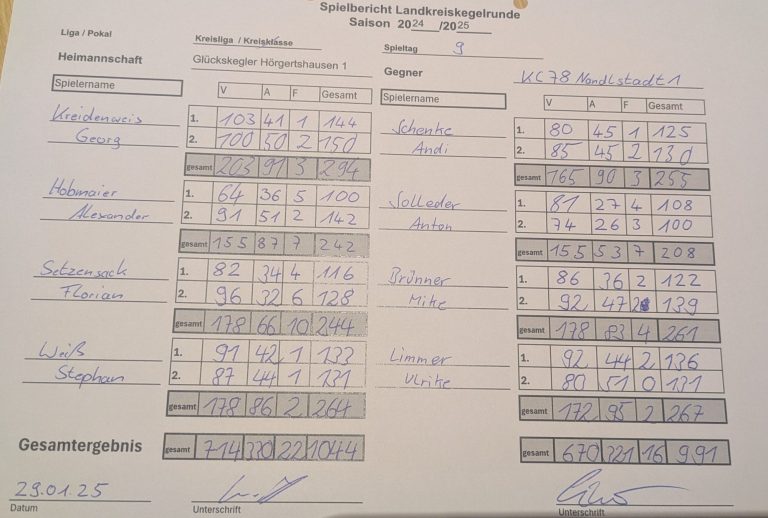 Spielbericht Landkreiskegelrunde
Saison 2024 /2025
Liga / Pokal
Kreisliga / Kreisklasse
Spieltag 9
Heimannschaft Glückskegler Hörgertshausen 1
Gegner KC78 Nandlstadt 1
Spielername V A F Gesamt
Spielername V A F Gesamt
Kreidenweis 1. 103 41 1 144
Georg 2. 100 50 2 150
gesamt 203 91 3 294
Schenke 1. 80 45 1 125
Andi 2. 85 45 2 130
gesamt 165 90 3 255
Hobmaier 1. 64 36 5 100
Alexander 2. 91 51 2 142
gesamt 155 87 7 242
Solleder 1. 81 27 4 108
Anton 2. 74 26 3 100
gesamt 155 53 7 208
Setzensack 1. 82 34 4 116
Florian 2. 96 32 6 128
gesamt 178 66 10 244
Brünner 1. 86 36 2 122
Mike 2. 92 47 2 139
gesamt 178 83 4 261
Weiß 1. 91 42 1 133
Stephan 2. 87 44 1 131
gesamt 178 86 2 264
Limmer 1. 92 44 2 136
Ulrike 2. 80 51 0 131
gesamt 172 95 2 267
Gesamtergebnis gesamt 714 330 22 1044
gesamt 670 321 16 991
29.01.25
Datum
Unterschrift
Unterschrift